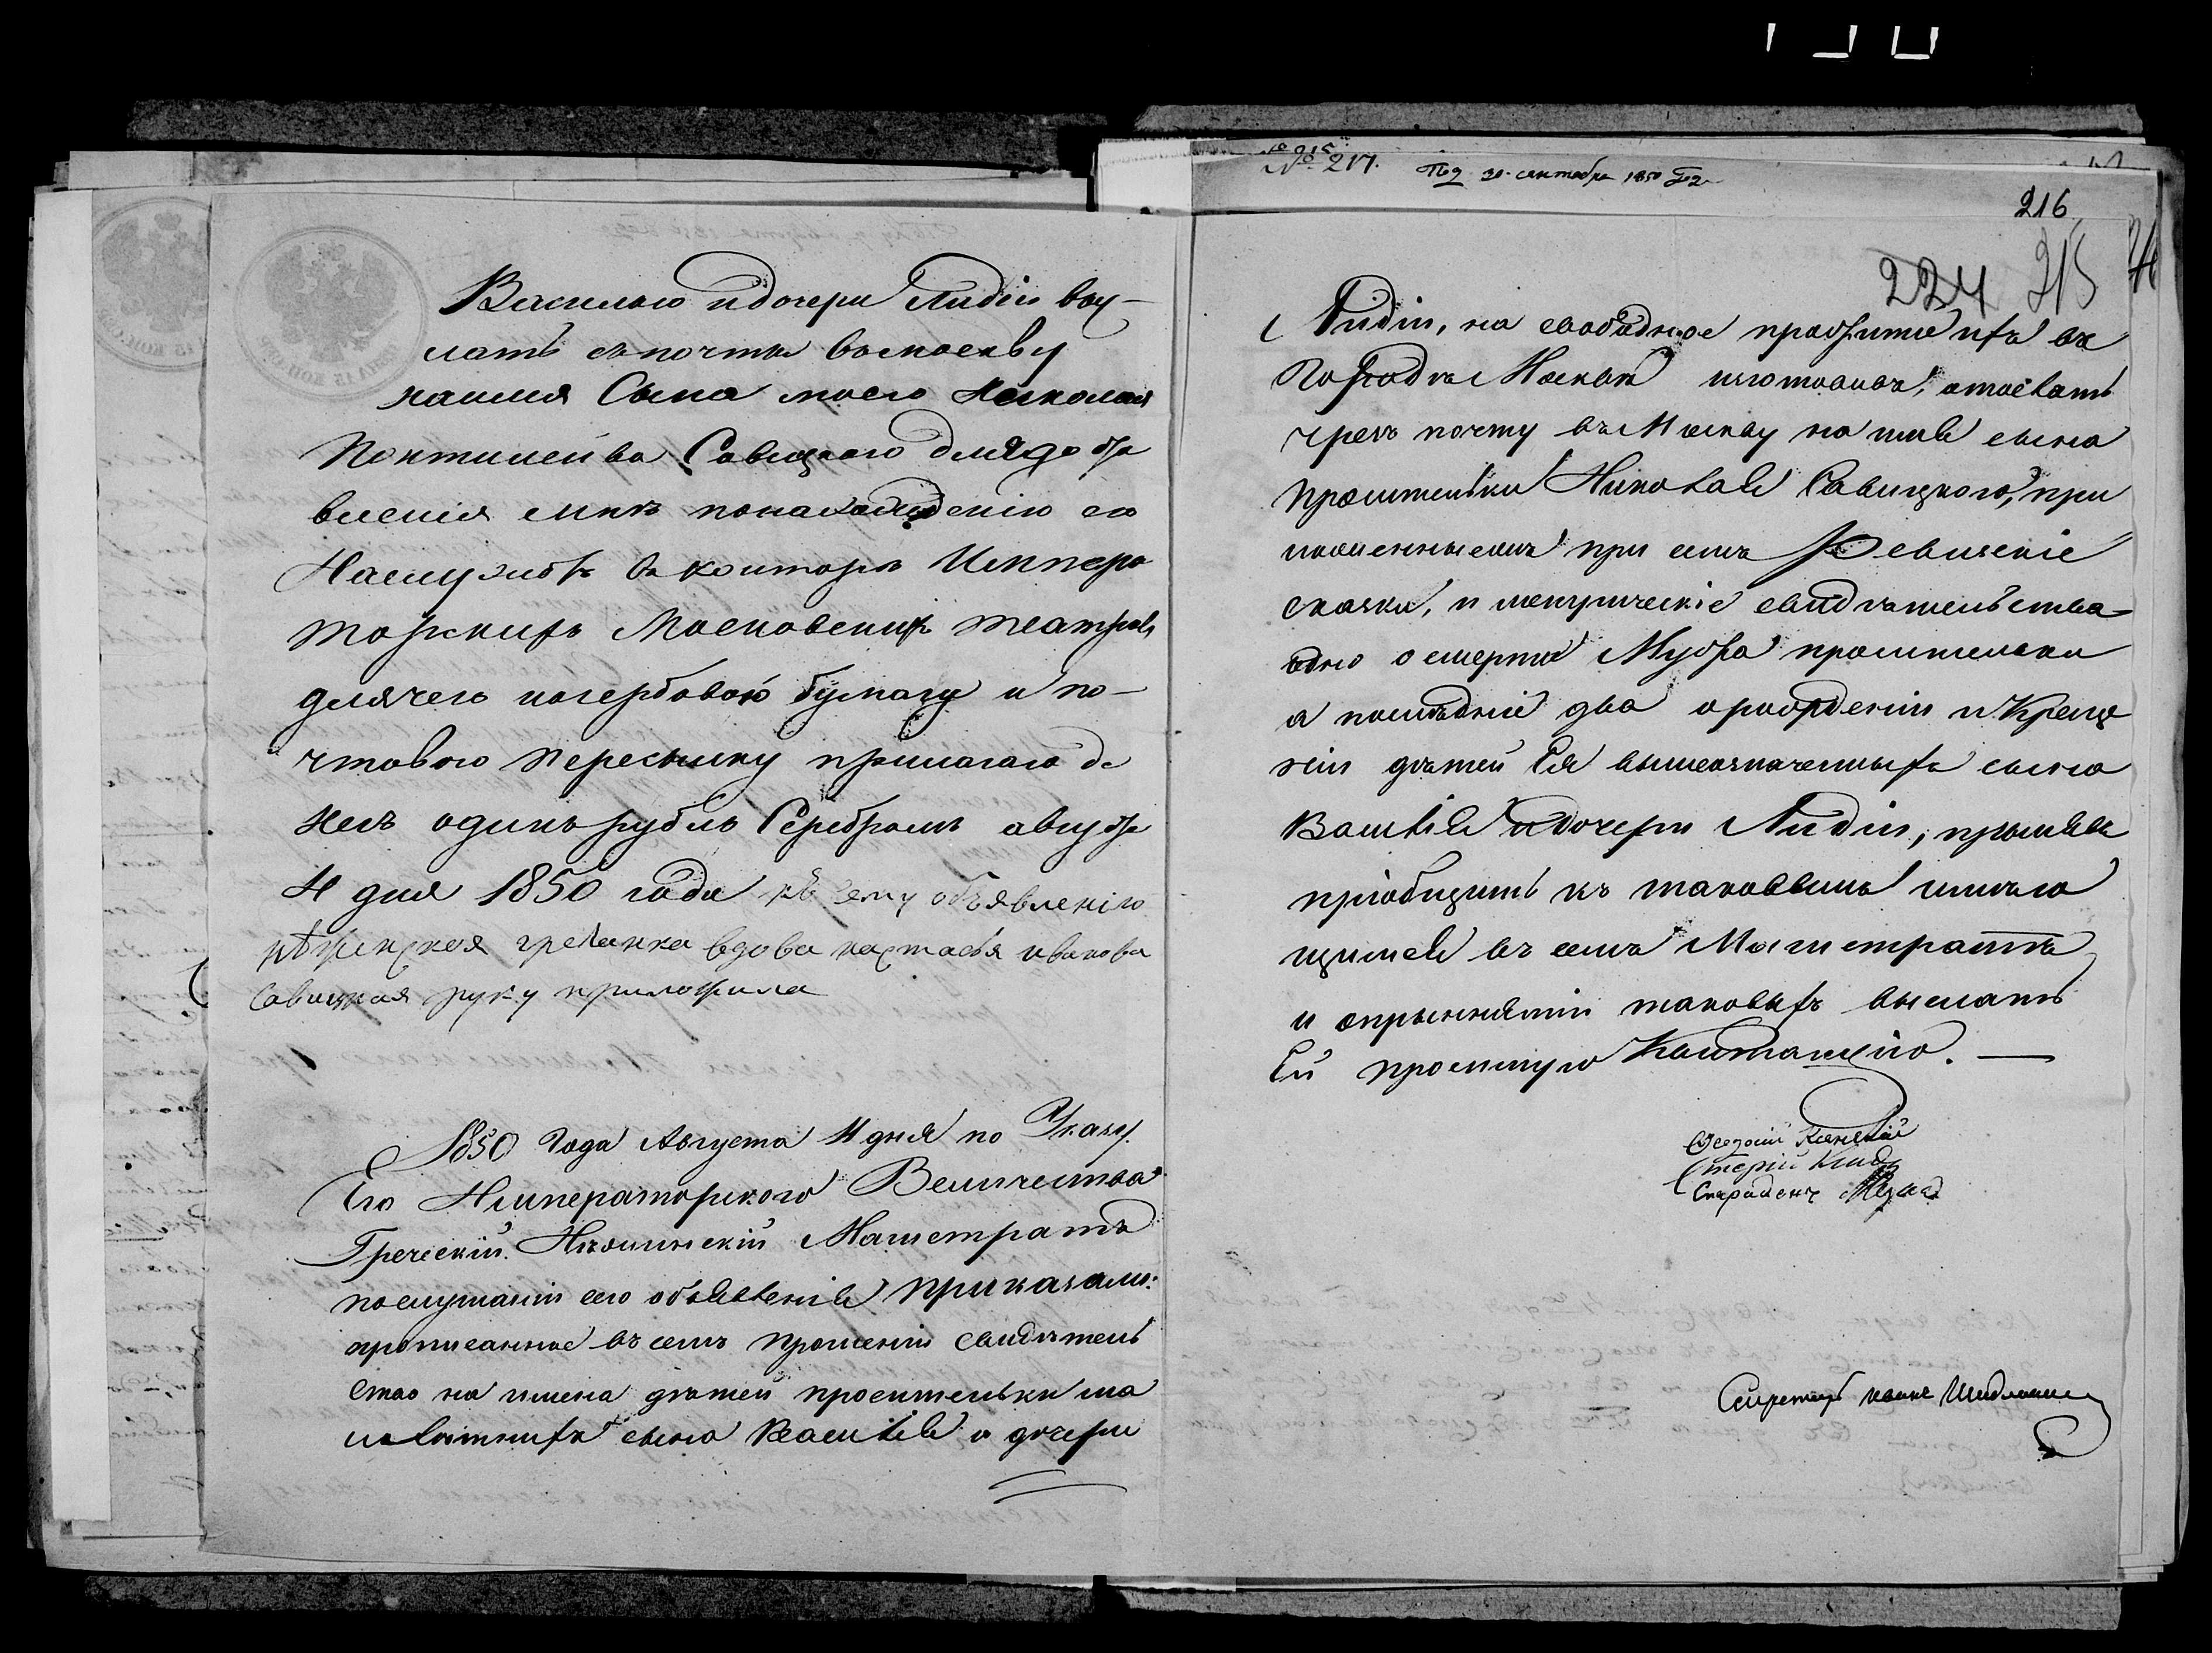 Василью и дочери Лидіи выс-
лать съ почты въ москву
наимя Сына моего Николая
Понтилеива Савицкаго для доста
вленія мнѣ понахожденію его
Наслужбѣ въ конторѣ Импера
торскихъ Московскихъ театровъ
для чего погербовою бумагу и по-
чтовою пересылку прилагаю де
негъ одинъ рубль Серебромъ августа
4 дня 1850 года къ сему объявленію
нѣжинская гречанка вдова настасья иванова
Савицкая руку приложила
1850 Года Августа 4 дня по Указу
Его Императорского Величества
Греческій Нѣжинскій Магистратъ
послушаніи сего объявленія приказали:
прописанное въ семъ прошеніи свидѣтель
ство на имена дѣтей просительки ма
лолѣтнихъ сына Василія и дочери
№ 217. 30. сентября 1850
216
224 215
Лидіи, на свободное прожитіе ихъ въ
Городѣ Москвѣ изготовивъ, отослать
чрезъ почту въ Москву на имя сына
просительки Николая Савицкого, при
ложенныемъ при семъ Ревизскіе
сказки, и метрическіе свидѣтельства
одно о смерти Мужа просительки
а послѣдніе два о рожденіи и Креще
ніи дѣтей Ея вышеозначенныхъ сына
Василія и дочери Лидіи, принявъ
пріобщить къ таковымъ имѣю
щимся въ семъ Магистратѣ
и опринятіи таковыхъ выслать
Ей просимую Квитанцію. —
Секретарь